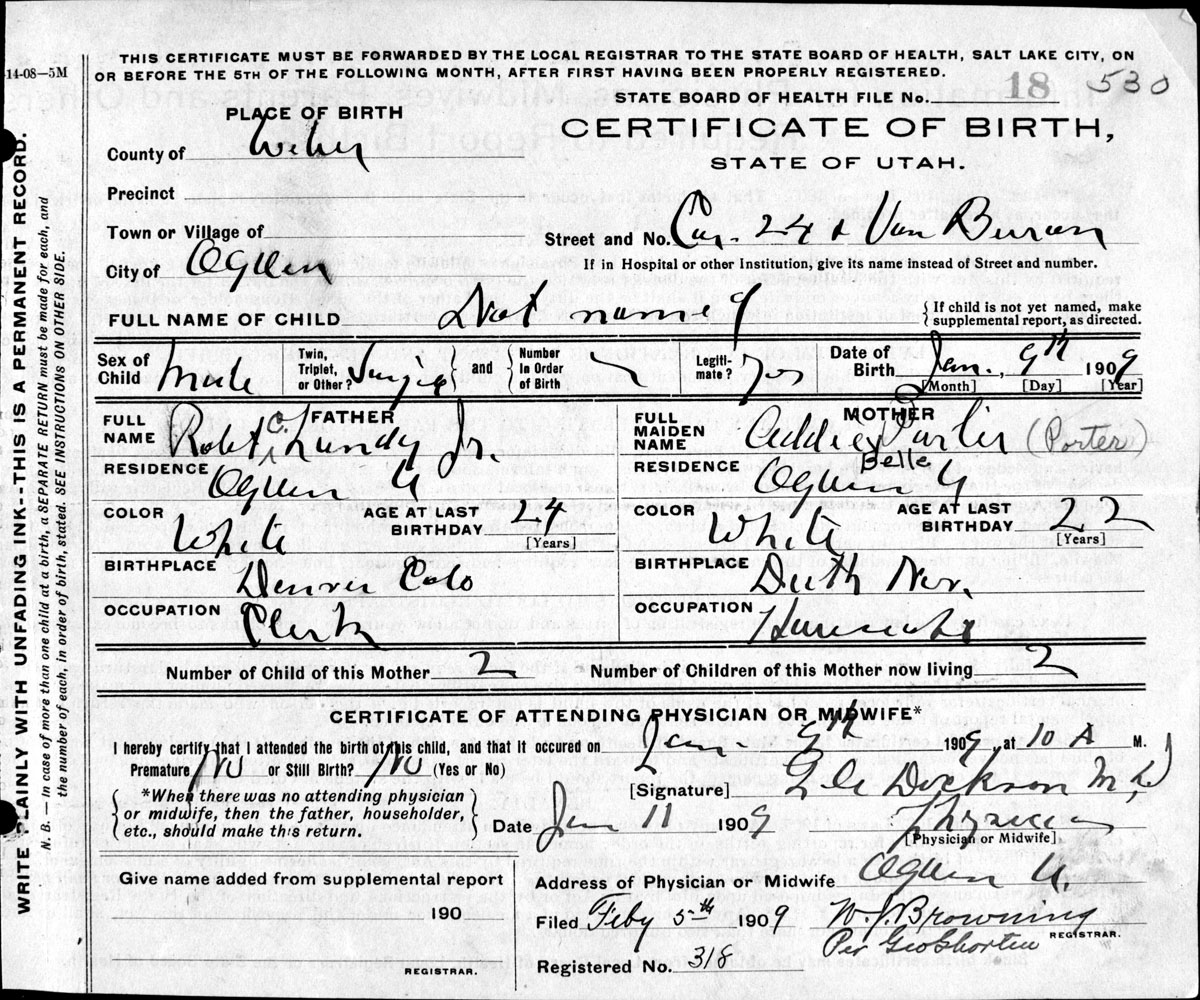 THIS CERTIFICATE MUST BE FORWARDED BY THE LOCAL REGISTRAR TO THE STATE BOARD OF HEALTH, SALT LAKE CITY, ON
-14-08—5M
OR BEFORE THE 5TH OF THE FOLLOWING MONTH, AFTER FIRST HAVING BEEN PROPERLY REGISTERED.
STATE BOARD OF HEALTH FILE No. 18 530
PLACE OF BIRTH
CERTIFICATE OF BIRTH,
STATE OF UTAH.
County of Weber
Precinct
Town or Village of
Street and No. Cor. 24 & Van Buren
City of Ogden
If in Hospital or other Institution, give its name instead of Street and number.
FULL NAME OF CHILD Not named
{If child is not yet named, make supplemental report, as directed.
Sex of Child Male
Twin, Triplet, or Other? Single and Number In Order of Birth
Legiti-mate? Yes
Date of Birth Jan., 9th 1909
[Month] [Day] [Year]
FATHER
FULL NAME Robt C. Lundy Jr.
RESIDENCE Ogden U
COLOR White
AGE AT LAST BIRTHDAY 24
[Years]
BIRTHPLACE Denver Colo
OCCUPATION Clerk
MOTHER
FULL MAIDEN NAME Addie Belle (Porter)
RESIDENCE Ogden U
COLOR White
AGE AT LAST BIRTHDAY 22
[Years]
BIRTHPLACE
OCCUPATION Housewife
Number of Child of this Mother 2
Number of Children of this Mother now living 2
CERTIFICATE OF ATTENDING PHYSICIAN OR MIDWIFE*
I hereby certify that I attended the birth of this child, and that it occured on Jan 9th 1909, at 10 A M.
Premature No or Still Birth? No (Yes or No)
[Signature] Dickson M.D
{*When there was no attending physician
or midwife, then the father, householder,
etc., should make this return.}
Date Jan 11 1909
Physician
[Physician or Midwife]
Give name added from supplemental report
190
REGISTRAR.
Address of Physician or Midwife Ogden U.
Filed Feby 5th 1909 W. J. Browning
REGISTRAR.
Per Geo Shorten
Registered No. 318
WRITE PLAINLY WITH UNFADING INK--THIS IS A PERMANENT RECORD.
N. B. — In case of more than one child at a birth, a SEPARATE RETURN must be made for each, and
the number of each, in order of birth, stated. SEE INSTRUCTIONS ON OTHER SIDE.